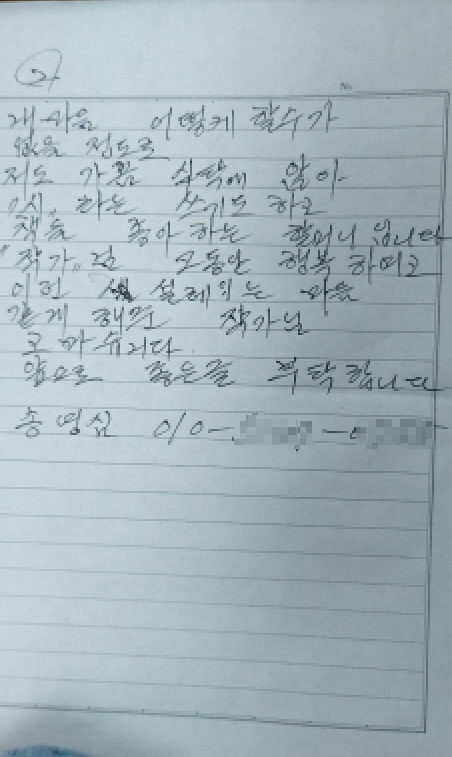 2
내 마음 어떻게 할수가
없을 정도로
저도 가끔 식탁에 앉아
"시" 라는 쓰기도 하고
책을 좋아 하는 할머니 입니다
"작가" 님 오동안 행복 하며고
이런 설레의는 마음
갖게 해주 작가님
고마슈리다
앞으로 좋은글 부탁합니다
송영심 010-